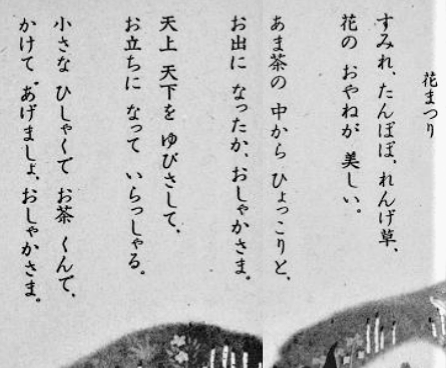 花まつり
すみれ、たんぽぽ、れんげ草、
花の おやねが 美しい。
あま茶の 中から ひょっこりと、
お出に なったか、おしゃかさま。
天上 天下を ゆびさして、
お立ちに なって いらっしゃる。
小さな ひしゃくで お茶 くんで、
かけて あげましょ、おしゃかさま。